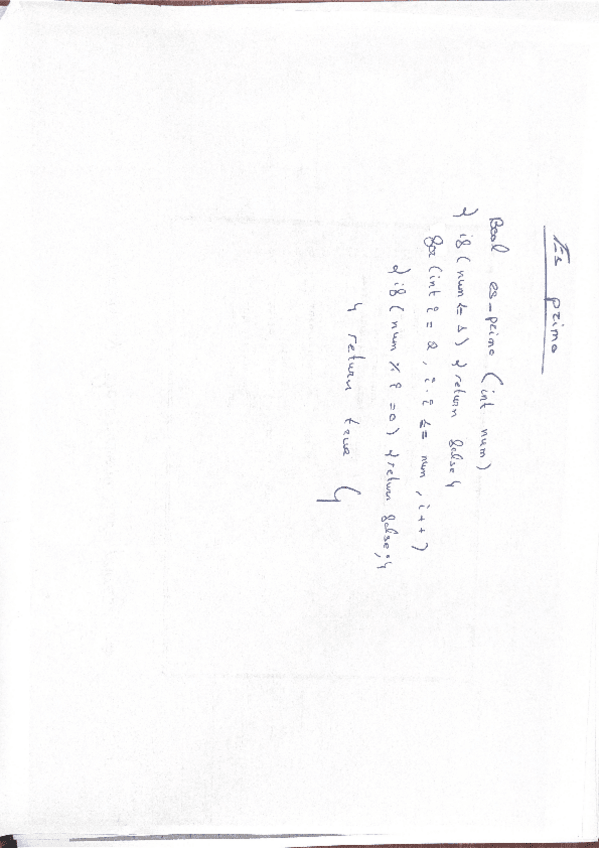 Es primo
Bool es-primo (int num)
{ if (num <= 1) { return false }
for (int i = 2, i·i <= num, i++)
{ if (num % i = 0) { return false; }
} return true }